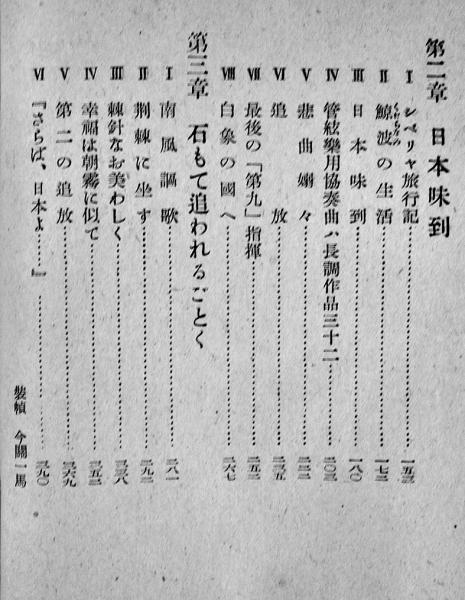 第二章　日本味到
Ⅰ　シベリヤ旅行記……一五三
Ⅱ　鯨波の生活……一七二
Ⅲ　日本味到……一八〇
Ⅳ　管絃樂用協奏曲ハ長調作品三十二……二〇三
Ⅴ　悲曲嫋々……二二二
Ⅵ　追放……二三五
Ⅶ　最後の「第九」指揮……二五二
Ⅷ　白象の國へ……二六七
第三章　石もて追われるごとく
Ⅰ　南風謳歌……二八一
Ⅱ　荆棘に坐す……二九二
Ⅲ　棘針なお美わしく……三三八
Ⅳ　幸福は朝霧に似て……三五二
Ⅴ　第二の追放……三六九
Ⅵ　『さらば、日本よ……』……三九〇
裝幀　今關一馬